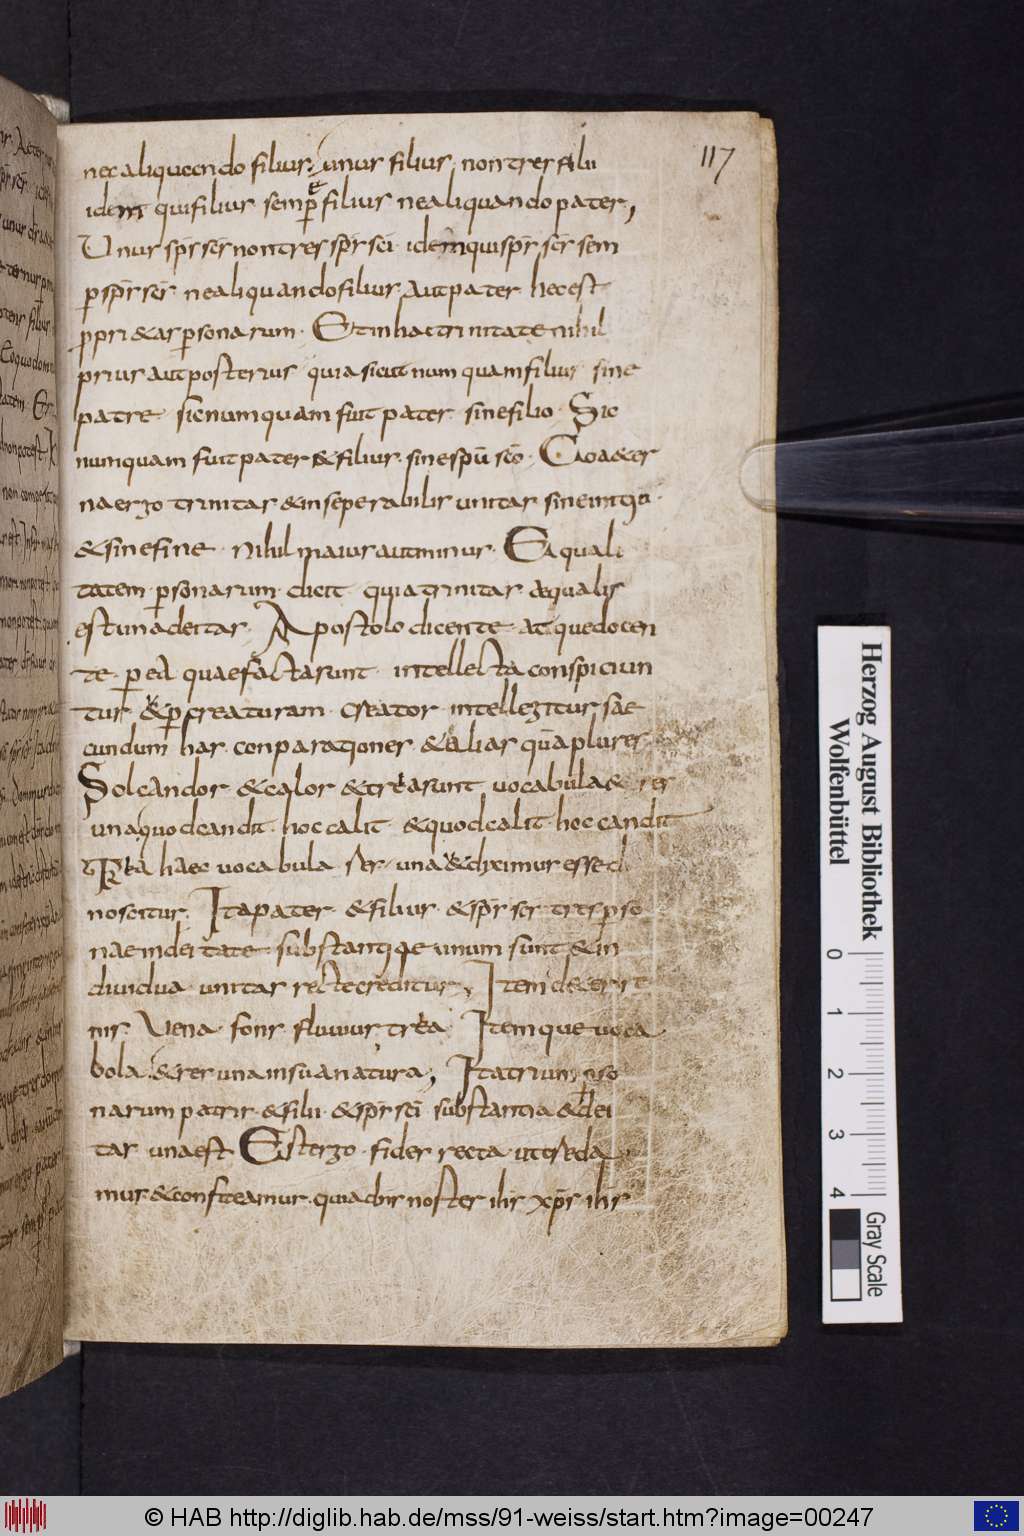 117
nec aliquando filius. unus filius. non tres filii
idem qui filius semp̄ & filius ne aliquando pater,
Unus sp̄s sc̄s non tres sp̄s sc̄i. idem qui sp̄s sc̄s sem
p sp̄s sc̄s ne aliquando filius aut pater. hec est
p̱pri&as p̱sonarum. Et in hac trinitate nihil
prius aut posterius quia sicut numquam filius sine
patre sic numquam fuit pater sine filio. Sic
numquam fuit pater & filius. sine sp̄u sc̄o. Coa&er
na ergo trinitas & inseperabilis unitas sine initio.
& sine fine. Nihil maius aut minus. Equali
tatem p̱sonarum dicit. quia trinitas æqualis
est una deitas. Apostolo dicente atque docen
te. p̱ ea quae facta sunt. intellecta conspiciun
tur. & p̱ creaturam creator intellegitur sae
cundum has conparationes & alias quā plures.
Sol candor & calor & tria sunt vocabula & res
una quod candit. hoc calit. & quod calit. hoc candit
tria haec vocabula res una & dix imus esse di
noscitur. Ita pater. & filius. & sp̄s sc̄s. tres p̱so
nae in dei tate substantiae unum sunt & in
dividua unitas recte creditur, Item de terre
nis. Vena fons fluvius tria Itemque voca
bola. & res una in sua natura, Ita trium p̱so
narum patris & filii. & sp̄s sc̄i substantia & dei
tas una est Est ergo. fides recta ut creda
mus & confiteamur quia dn̄s noster ih̄s xp̄s ih̄s
Herzog August Bibliothek
Wolfenbüttel
0 1 2 3 4
Gray Scale
© HAB http://diglib.hab.de/mss/91-weiss/start.htm?image=00247